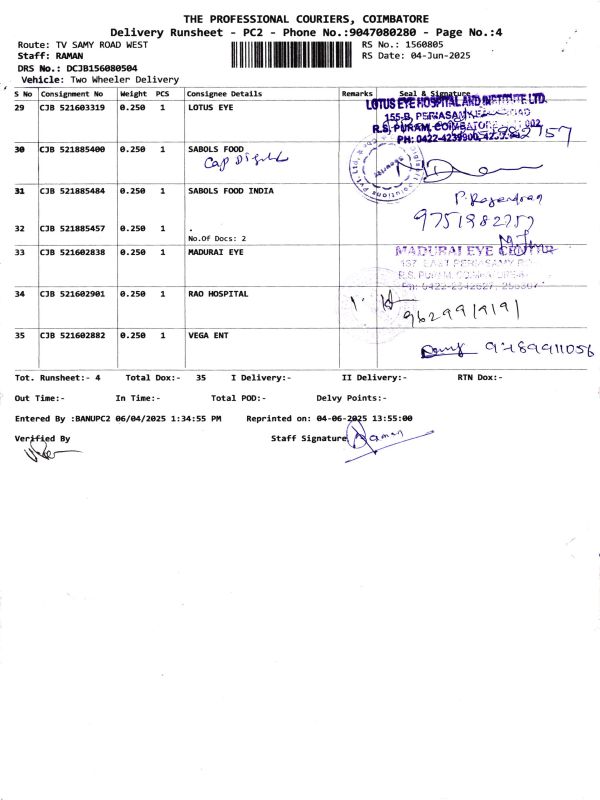 THE PROFESSIONAL COURIERS, COIMBATORE
Delivery Runsheet - PC2 - Phone No.:9047080280 - Page No.:4
Route: TV SAMY ROAD WEST
RS No.: 1560805
Staff: RAMAN
RS Date: 04-Jun-2025
DRS No.: DCJB156080504
Vehicle: Two Wheeler Delivery
S No Consignment No Weight PCS Consignee Details Remarks Seal & Signature
29 CJB 521603319 0.250 1 LOTUS EYE
LOTUS EYE HOSPITAL AND INSTITUTE LTD.
R.S. PURAM, COIMBATORE
PH: 0422-4239900,
30 CJB 521885400 0.250 1 SABOLS FOOD
31 CJB 521885484 0.250 1 SABOLS FOOD INDIA
P. Rajendran
9751982757
32 CJB 521885457 0.250 1 .
No.Of Docs: 2
33 CJB 521602838 0.250 1 MADURAI EYE
MADURAI EYE CENTRE
34 CJB 521602901 0.250 1 RAO HOSPITAL
9629919191
35 CJB 521602882 0.250 1 VEGA ENT
Tot. Runsheet:- 4 Total Dox:- 35 I Delivery:- II Delivery:- RTN Dox:-
Out Time:- In Time:- Total POD:- Delvy Points:-
Entered By :BANUPC2 06/04/2025 1:34:55 PM Reprinted on: 04-06-2025 13:55:00
Verified By
Staff Signature Raman